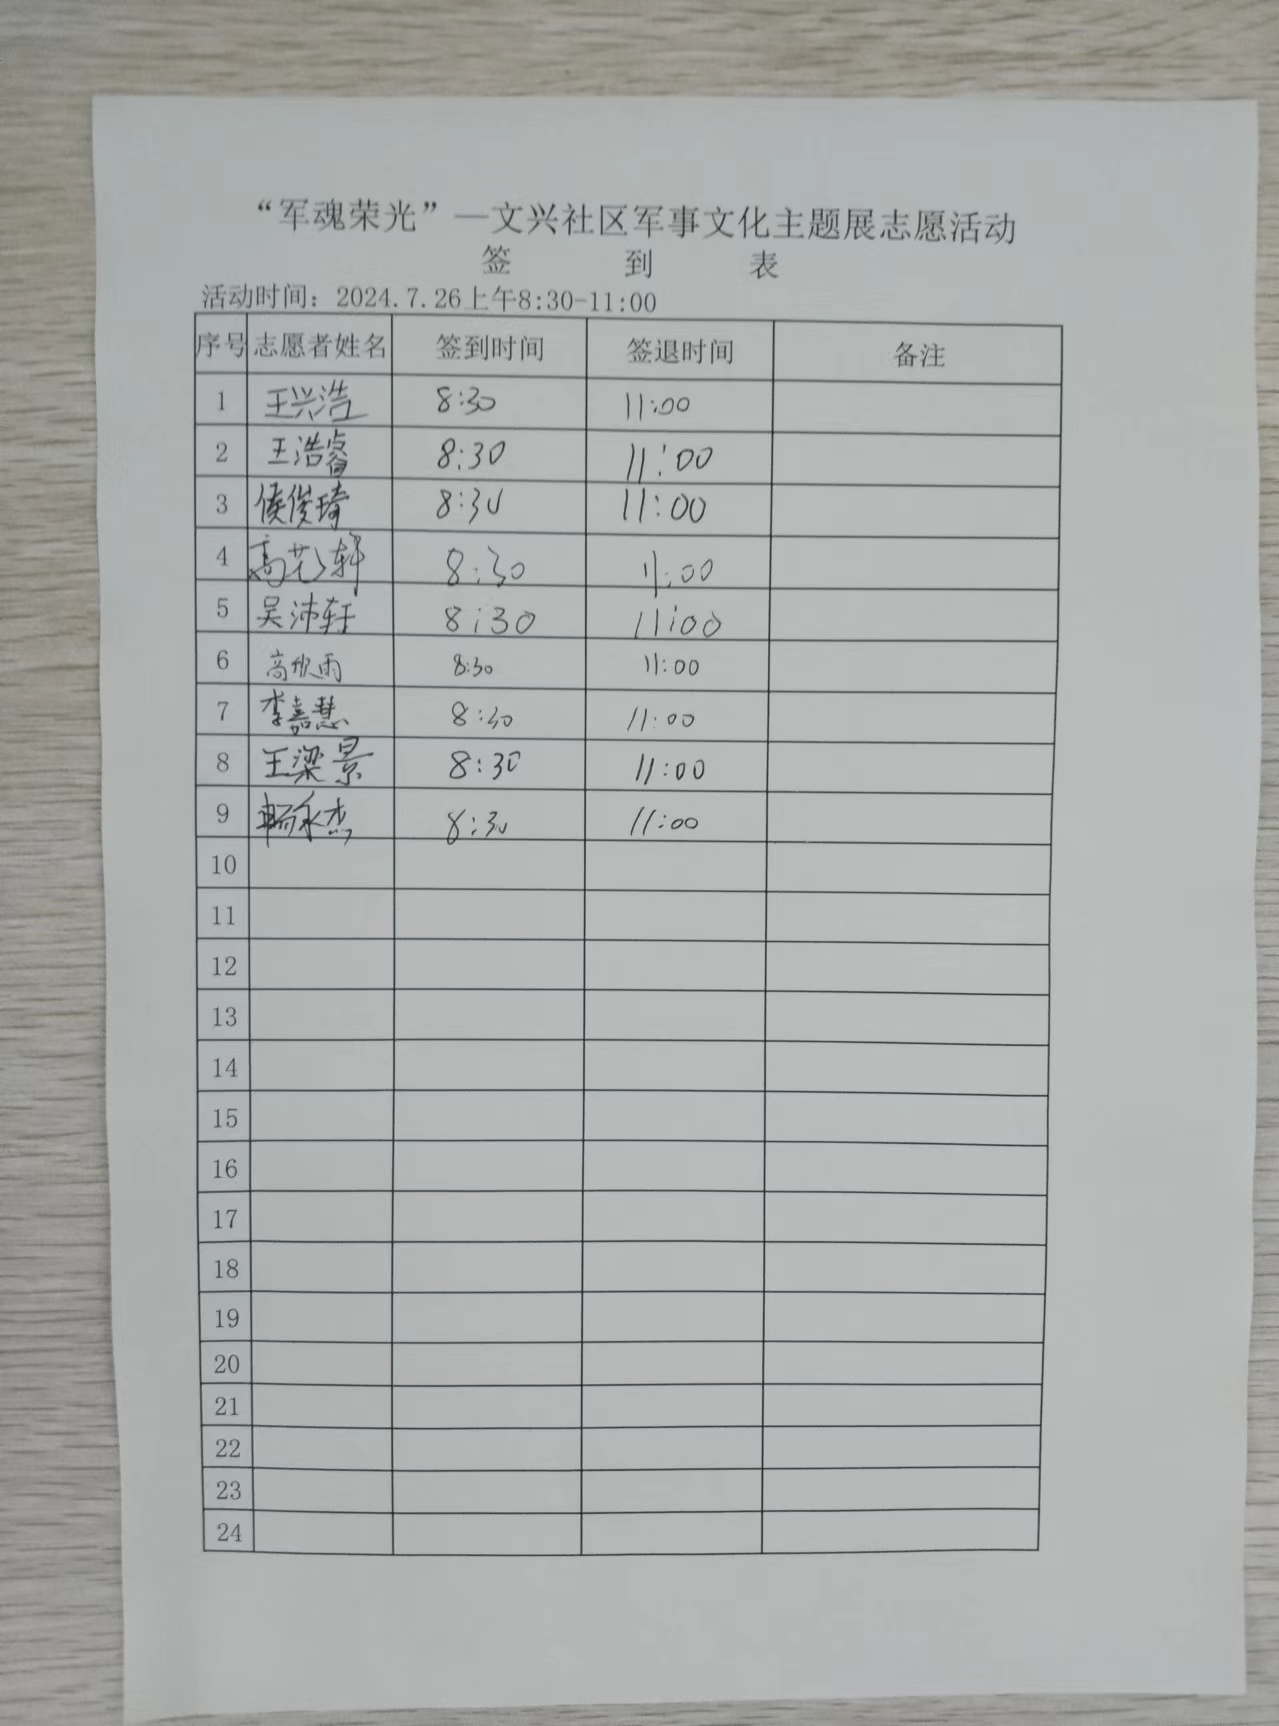 “军魂荣光”—文兴社区军事文化主题展志愿活动
签 到 表
活动时间：2024.7.26上午8:30-11:00
序号 志愿者姓名 签到时间 签退时间 备注
1 王兴浩 8:30 11:00
2 王浩睿 8:30 11:00
3 侯俊琦 8:30 11:00
4 高艺轩 8:30 11:00
5 吴沛轩 8:30 11:00
6 高欣雨 8:30 11:00
7 李嘉慧 8:30 11:00
8 王梁景 8:30 11:00
9 畅永杰 8:30 11:00
10
11
12
13
14
15
16
17
18
19
20
21
22
23
24